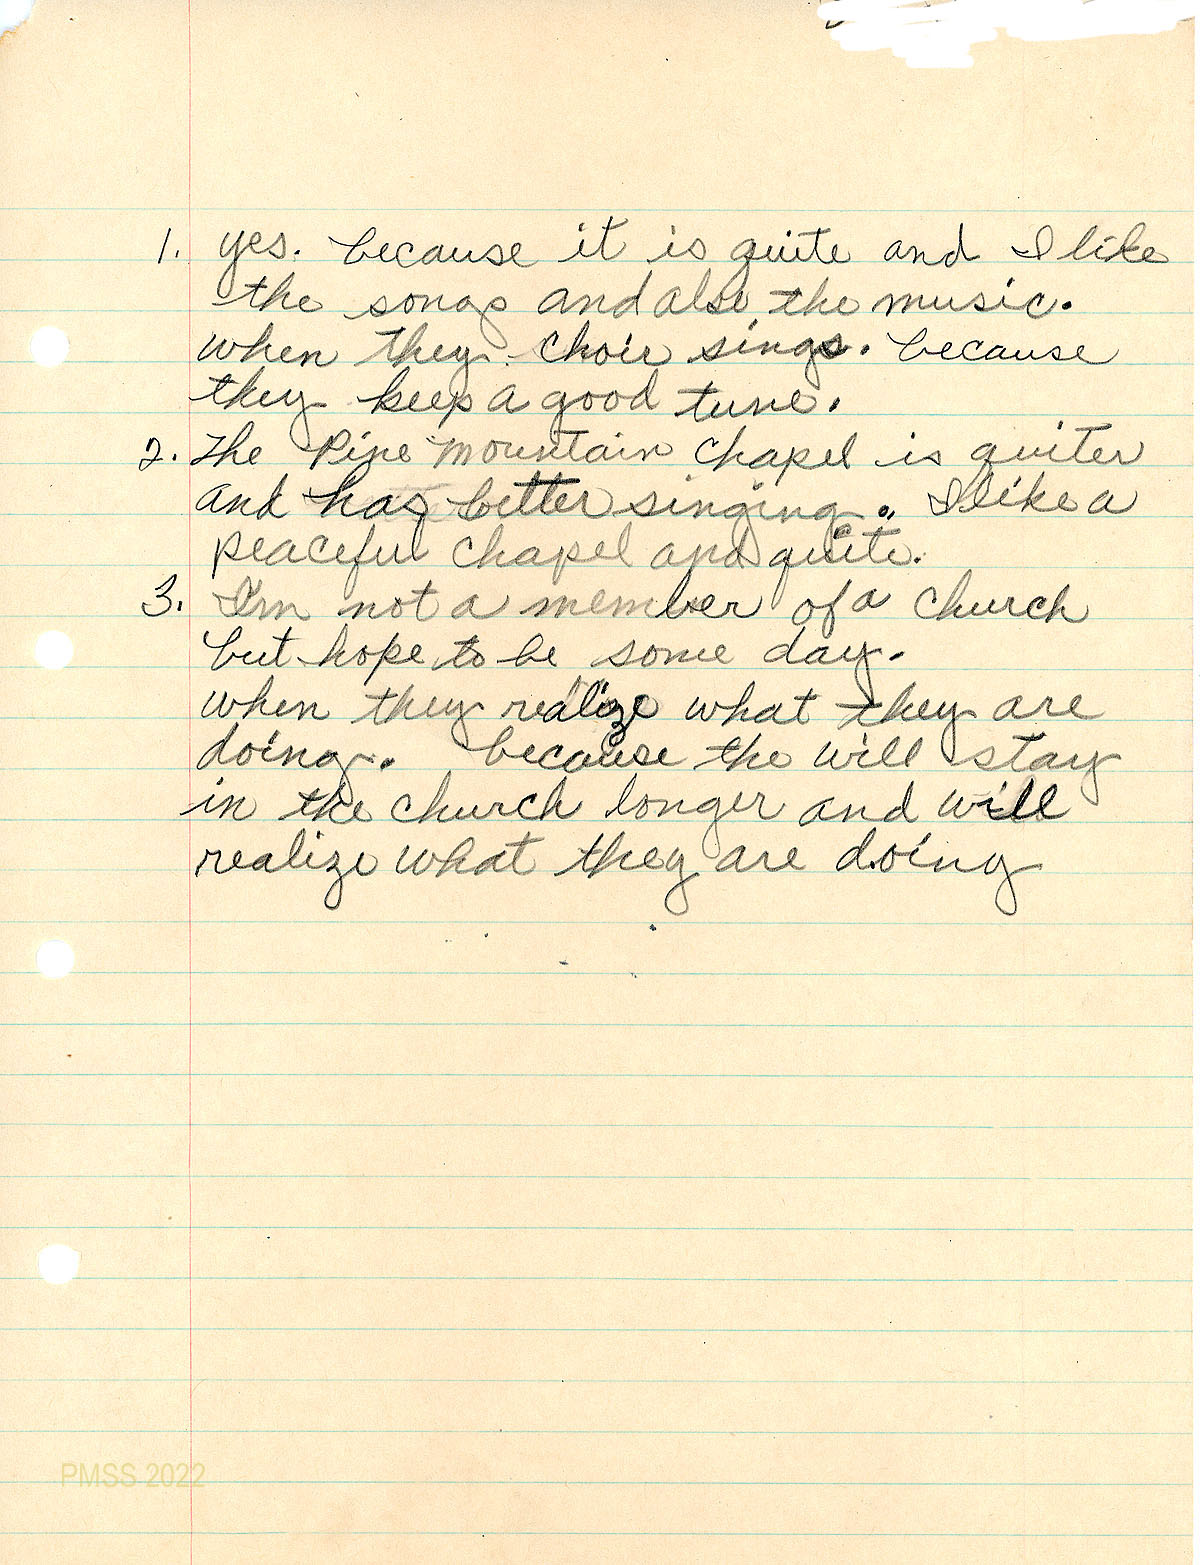 1. yes. because it is quite and I like
the songs and also the music.
when they choir sings. because
they keep a good tune.
2. The Pine Mountain Chapel is quiter
and has better singing. I like a
peaceful chapel and quite.
3. I'm not a member of a church
but hope to be some day.
when they realize what they are
doing. because the will stay
in the church longer and will
realize what they are doing
PMSS 2022